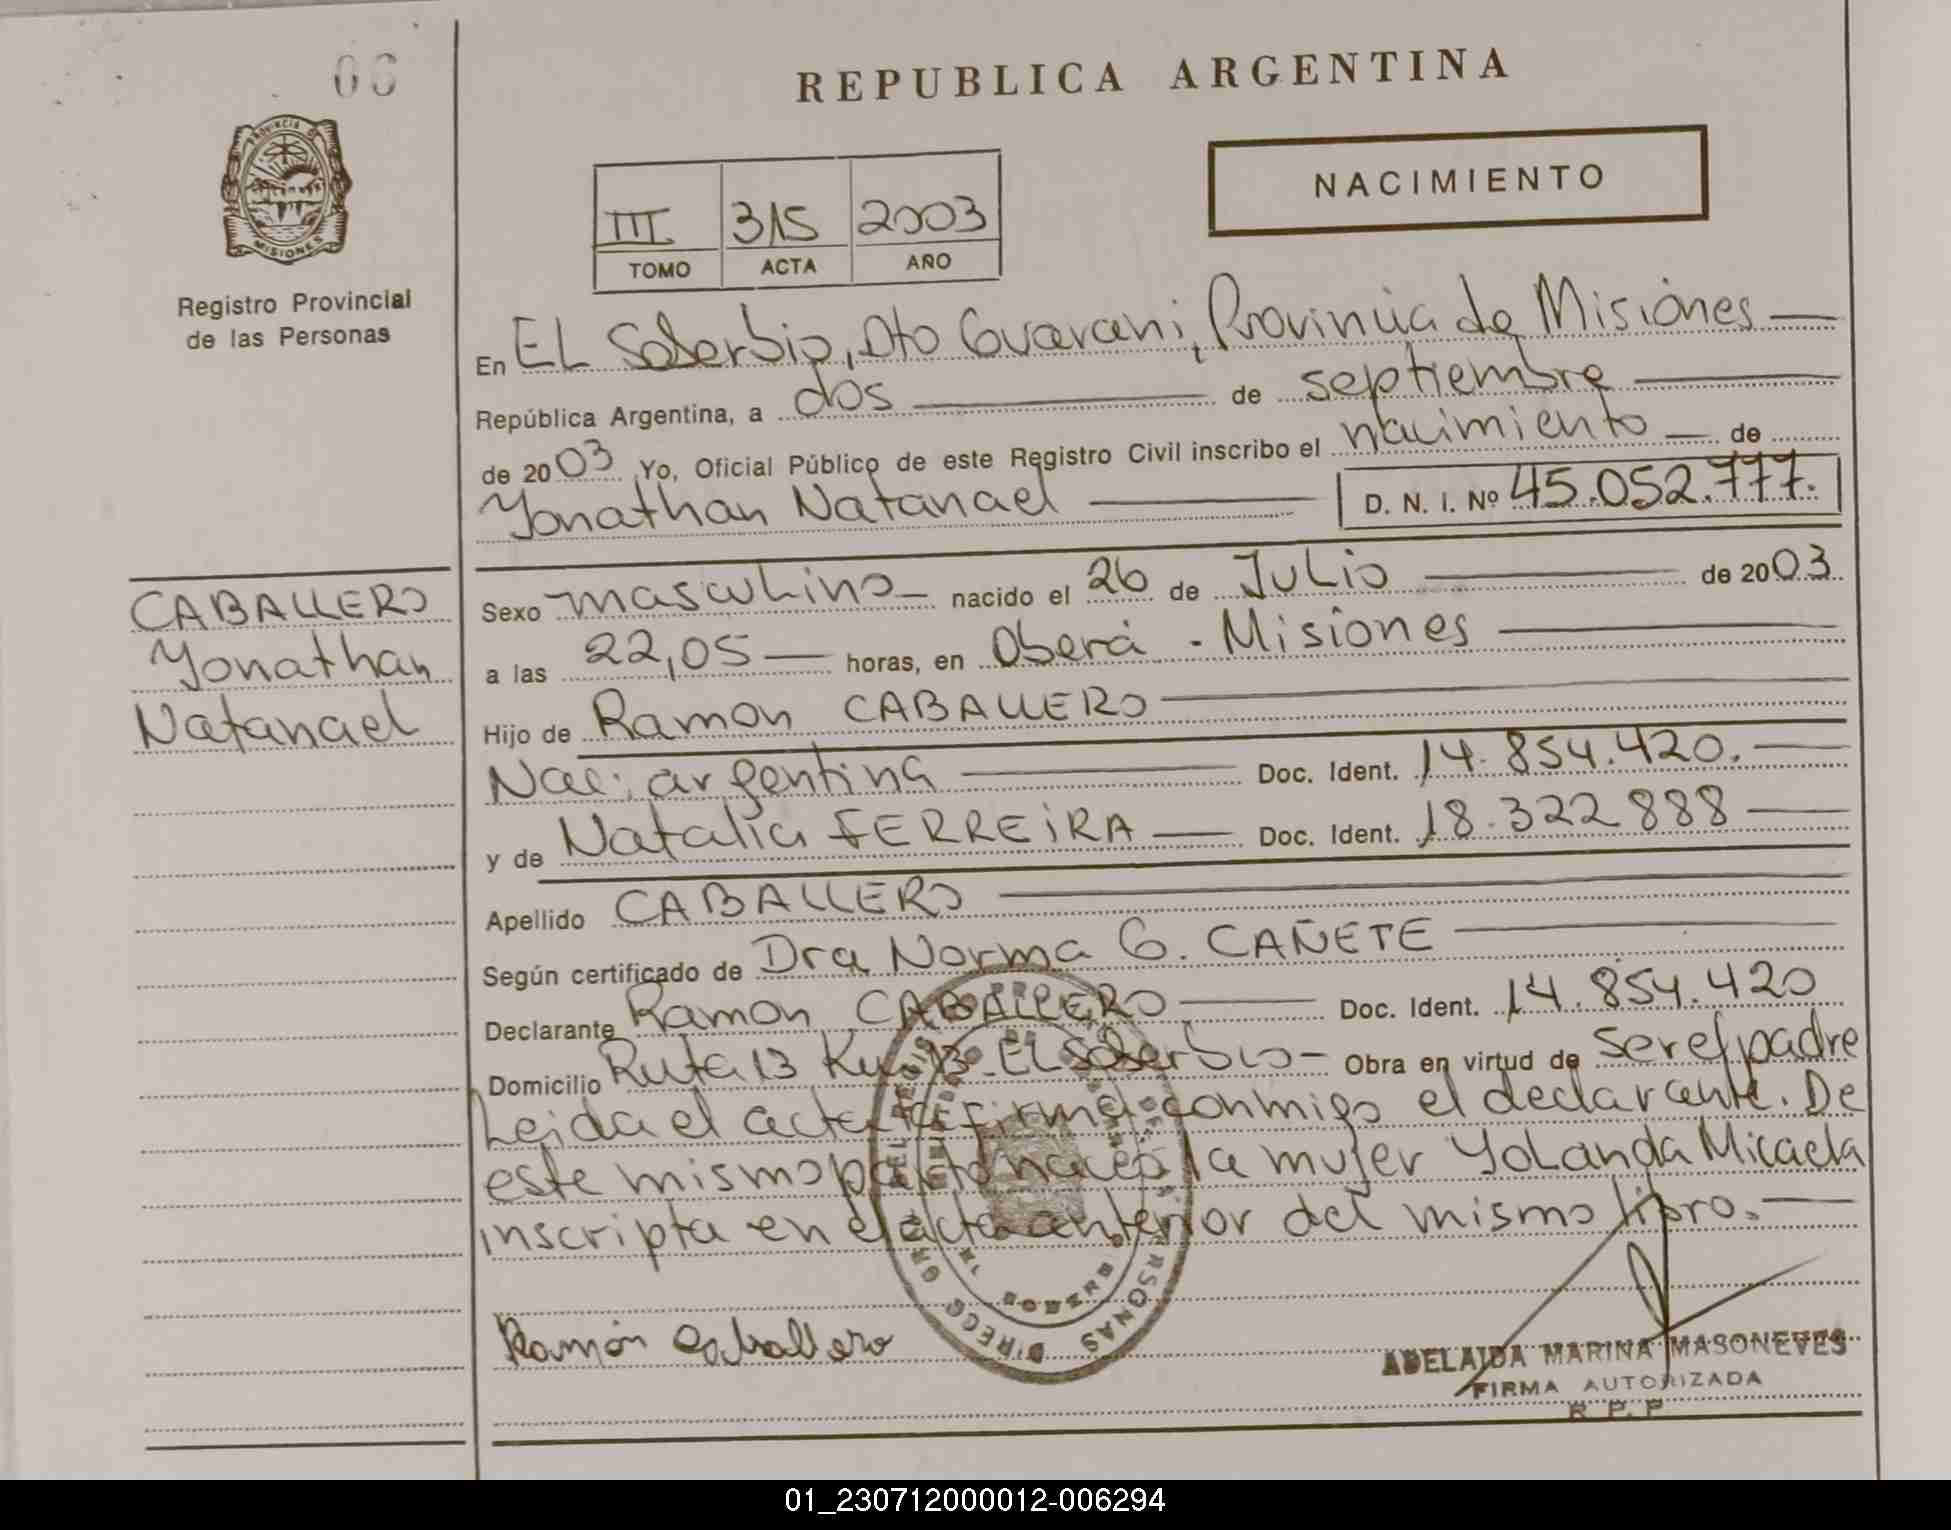 06
REPUBLICA ARGENTINA
NACIMIENTO
III 315 2003
TOMO ACTA AÑO
PROVINCIA DE
MISIONES
Registro Provincial
de las Personas
En EL Soberbio, Dto Guarani, Provincia de Misiones
República Argentina, a dos de septiembre
de 2003 Yo, Oficial Público de este Registro Civil inscribo el nacimiento de
Yonathan Natanael D. N. I. Nº 45.052.777.
CABALLERO
Yonathan
Natanael
Sexo masculino nacido el 26 de Julio de 2003
a las 22,05 horas, en Oberá - Misiones
Hijo de Ramon CABALLERO
Nac: argentina Doc. Ident. 14.854.420.
y de Natalia FERREIRA Doc. Ident. 18.322.888
Apellido CABALLERO
Según certificado de Dra Norma G. CAÑETE
Declarante Ramon CABALLERO Doc. Ident. 14.854.420
Domicilio Ruta 13 Km 13 - EL Soberbio - Obra en virtud de ser el padre
Leida el acta la firma conmigo el declarante. De
este mismo parto nacio la mujer Yolanda Micaela
inscripta en el acta anterior del mismo libro.
Ramón Caballero
PERSONAS DIRECC
ADELAIDA MARINA MASONEVES
FIRMA AUTORIZADA
R. P. P.
01_230712000012-006294